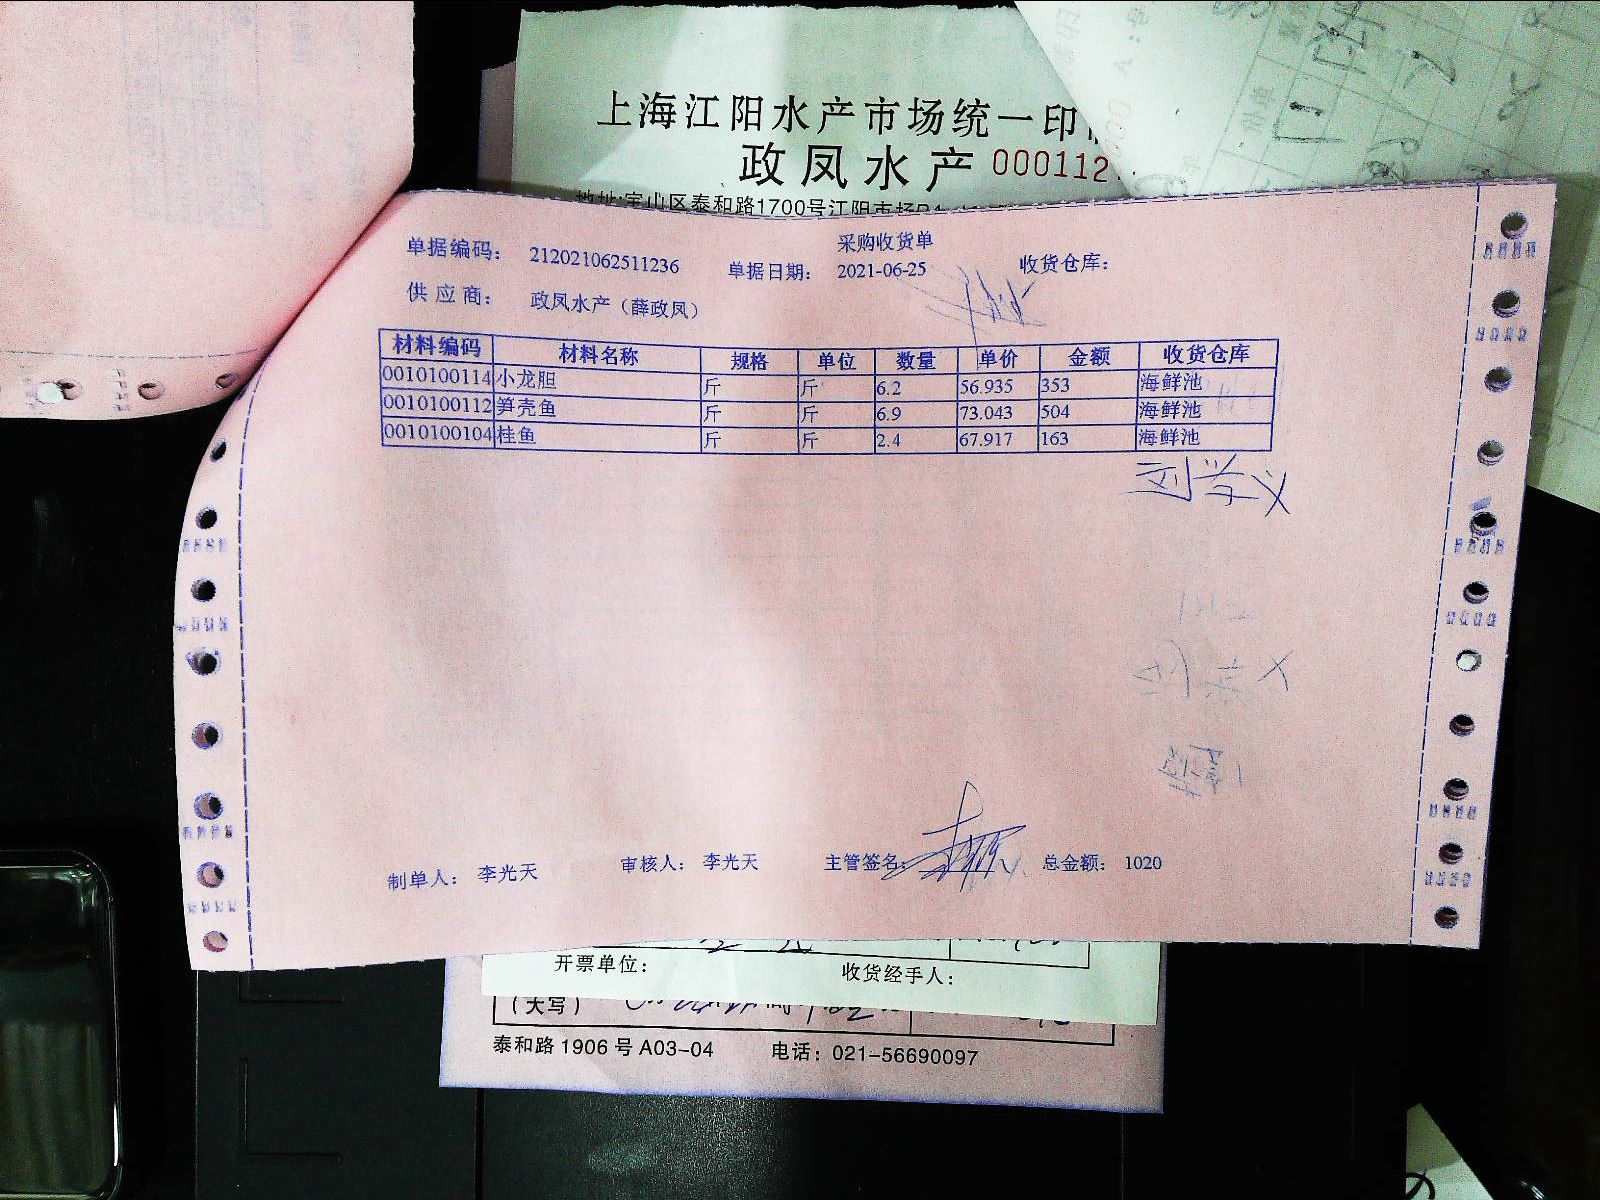 上海江阳水产市场统一印
政凤水产 000112
地址:宝山区泰和路1700号江阳市场
采购收货单
单据编码: 212021062511236 单据日期: 2021-06-25 收货仓库:
供应商: 政凤水产（薛政凤）
材料编码 材料名称 规格 单位 数量 单价 金额 收货仓库
0010100114 小龙胆 斤 斤 6.2 56.935 353 海鲜池
0010100112 笋壳鱼 斤 斤 6.9 73.043 504 海鲜池
0010100104 桂鱼 斤 斤 2.4 67.917 163 海鲜池
刘学义
制单人: 李光天 审核人: 李光天 主管签名: 总金额: 1020
开票单位: 收货经手人:
(大写)
泰和路1906号A03-04 电话: 021-56690097